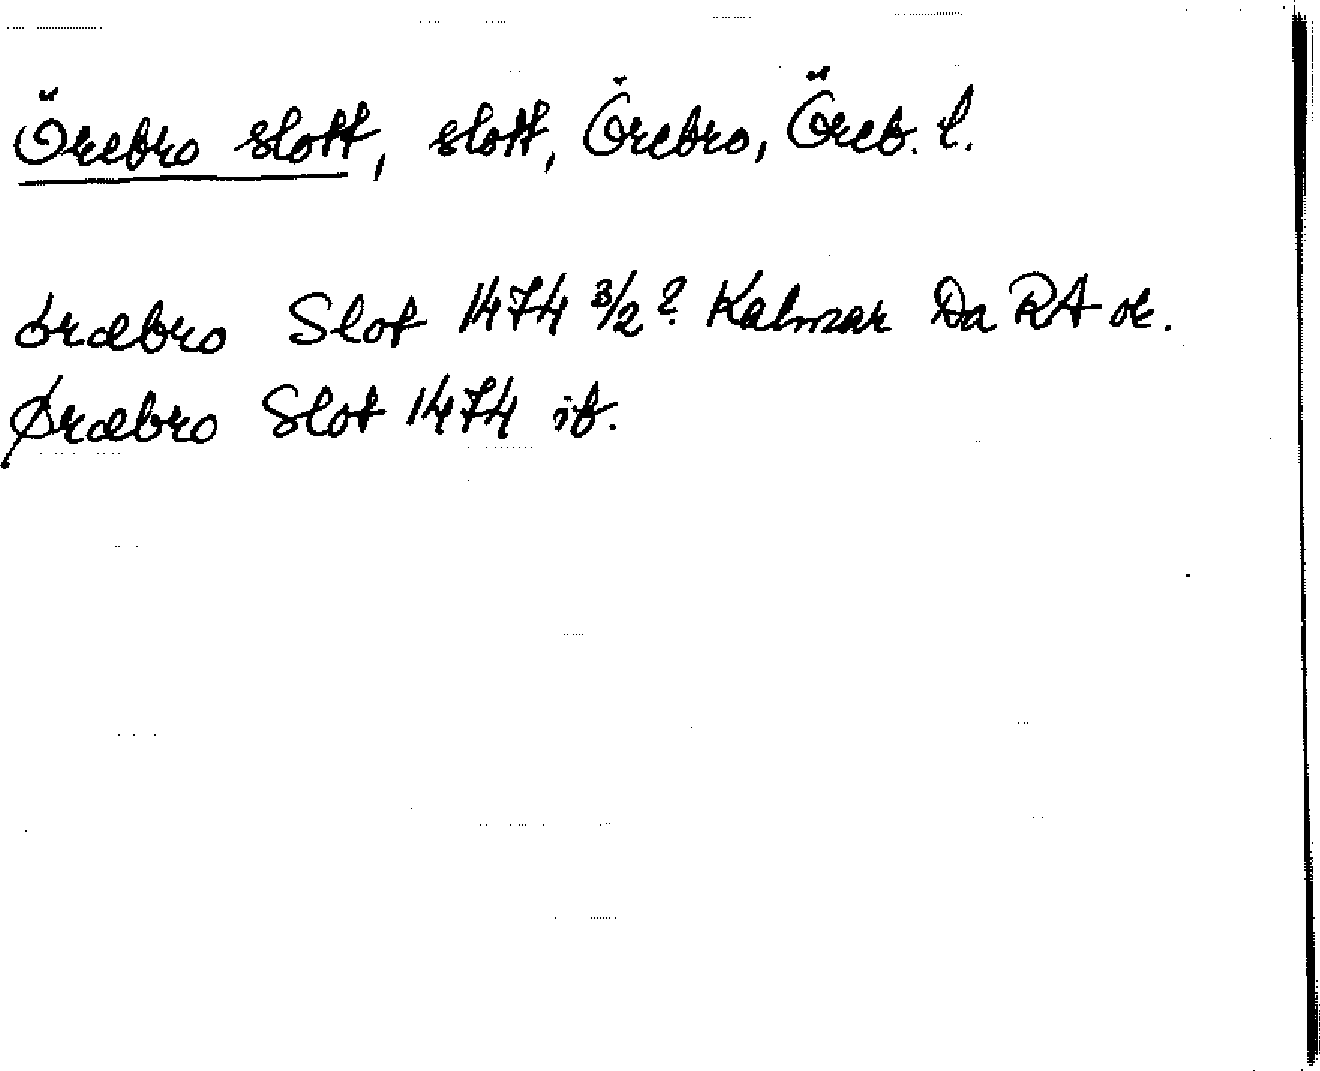 Örebro slott, slott, Örebro, Öreb. l.
øræbro Slot 1474 3/2? Kalmar Da RA or.
Øræbro Slot 1474 ib.